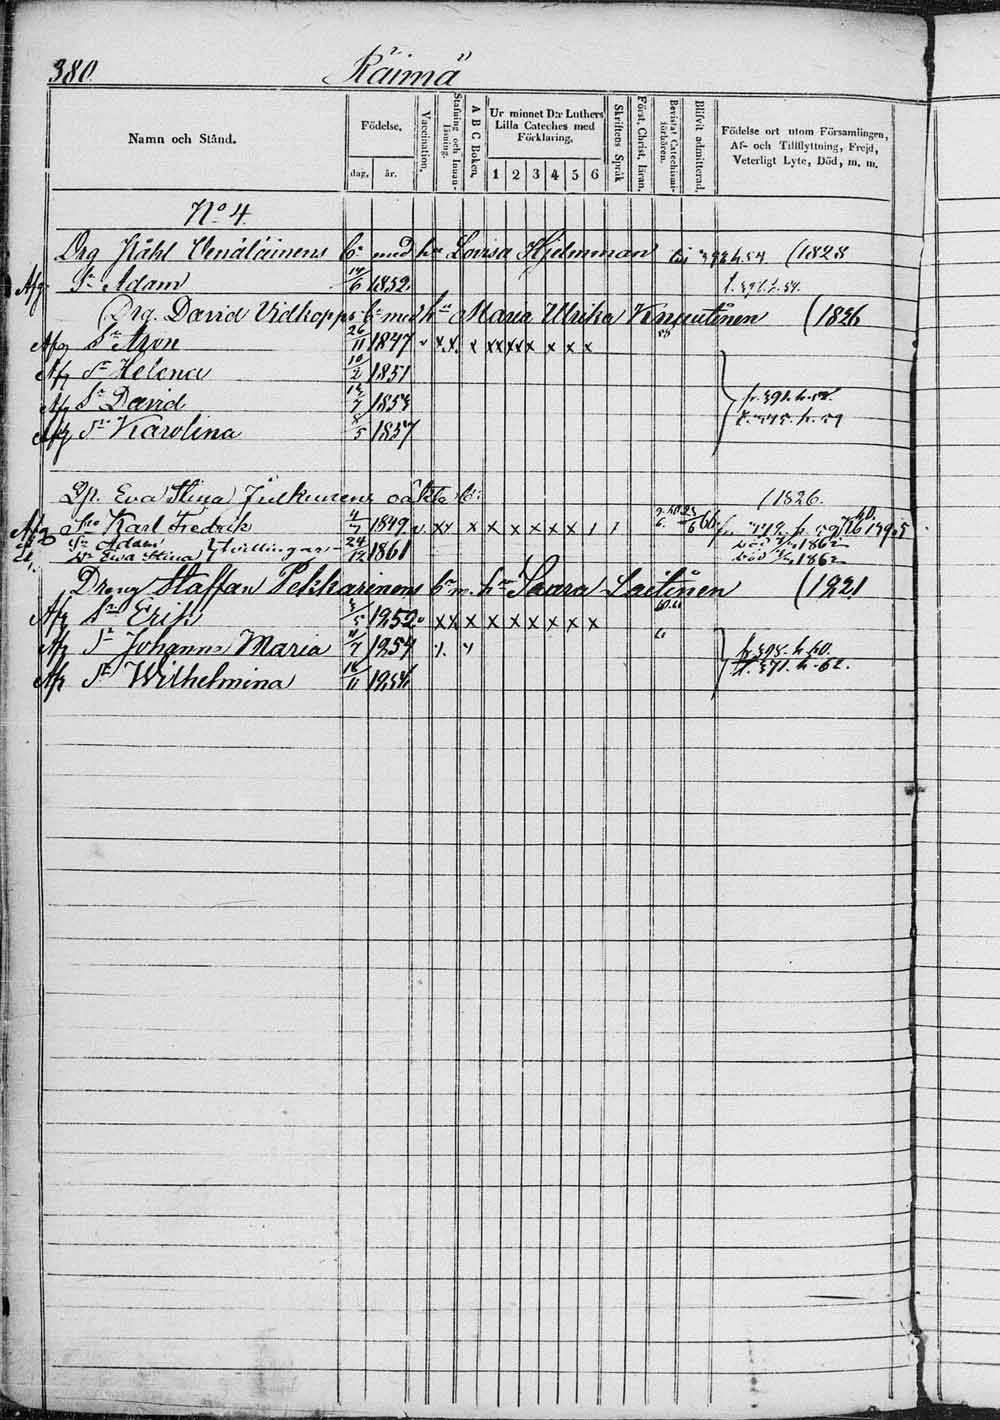 380. Räimä
Namn och Stånd. Födelse. dag. år. Vaccination. Stafning och Innanläsning. A B C Boken. Ur minnet D:r Luthers Lilla Cateches med Förklaring. 1 2 3 4 5 6 Skriftens Språk Först. Christ. läran. Bevistat Catechismiförhören. Blifvit admitterad. Födelse ort utom Församlingen, Af- och Tillflyttning, Frejd, Veterligt Lyte, Död, m. m.
No 4
Drg Ståhl Venäläinens b. med hu Lovisa Hjelmman (1828
Afg. Sn Adam 6 1852
Drg. David Vidkopps b. med hu Maria Ulrika Knuutinen (1826
Afg Sn Aron 26/11 1847 x x x x x x x x x x
Afg Dr Helena 10/2 1851
Afg Sn David 12/7 1853 f. 391. h.
Afg Dr Karolina 8/5 1857
Dp. Eva Stina Julkunens oäkta b: (1826.
Afg Son Karl Fredrik 4/7 1849 v. x x x x x x x x x
Sn Adam 24/12 1861 död 1862
Dr Ewa Stina } tvillingar död 1862
Dreng Staffan Pekkarinens b. m. hu Saara Laitinen (1821
Afg Sn Erik 5 1852 x x x x x x x x x
Afg Dr Johanna Maria 11/7 1857 f. 398. h. 60.
Afg Dr Wilhelmina 16/11 1854 t. 371. h. 62.